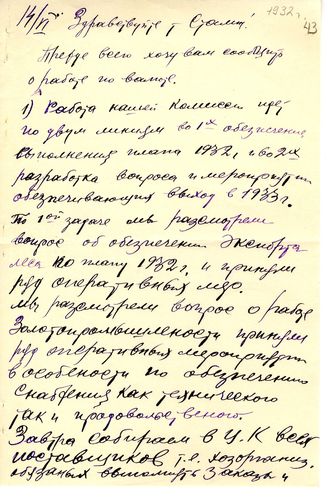 14/VI Здравствуйте т Сталин!
1932 г.
43
Прежде всего хочу вам сообщить
о работе по валюте.
1) Работа нашей комиссии идет
по двум линиям во 1х обезпечение
выполнения плана 1932, и во 2х
разработка вопроса и мероприятий
обезпечивающих выход в 1933 г.
По 1ой задаче мы разсмотрели
вопрос об обезпечении экспорта
леса по плану 1932 г. и приняли
ряд оперативных мер.
Мы разсмотрели вопрос о работе
Золотопромышлености приняли
ряд оперативных мероприятий
в особености по обезпечению
снабжения как технического
так и продовольственого.
Завтра собираем в Ц.К всех
поставщиков т.е. хозорганиз.
обязаных выполнять заказы и